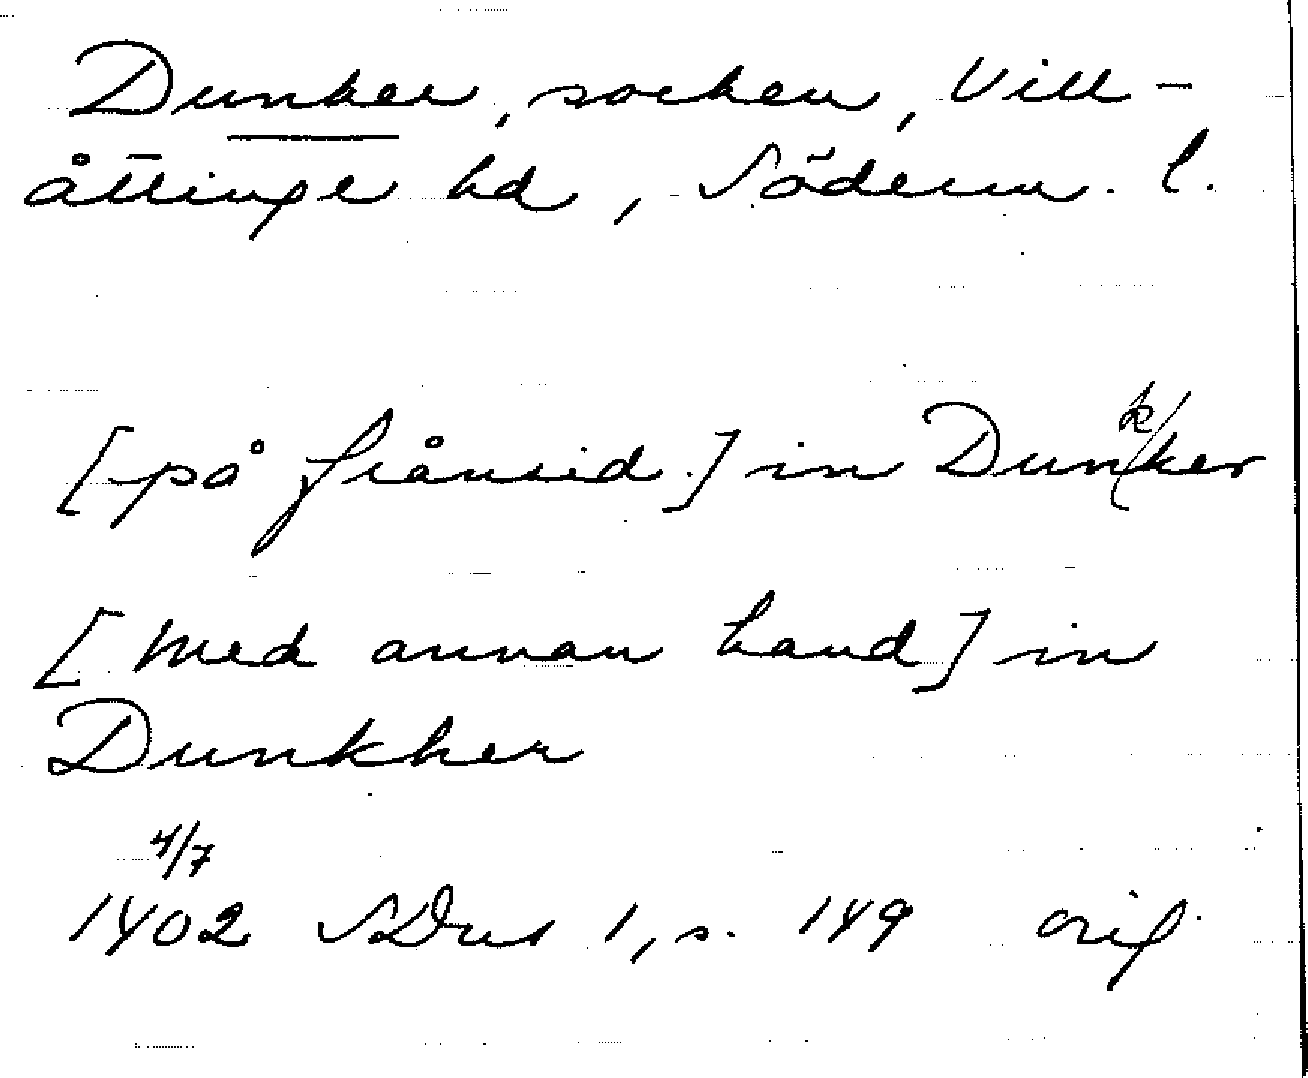 Dunker, socken, Vill-
åttinge hd, Söderm. l.
[på frånsid.] in Dunkker
[med annan hand] in
Dunkher
4/7
1402 SDns 1, s. 149 orig.